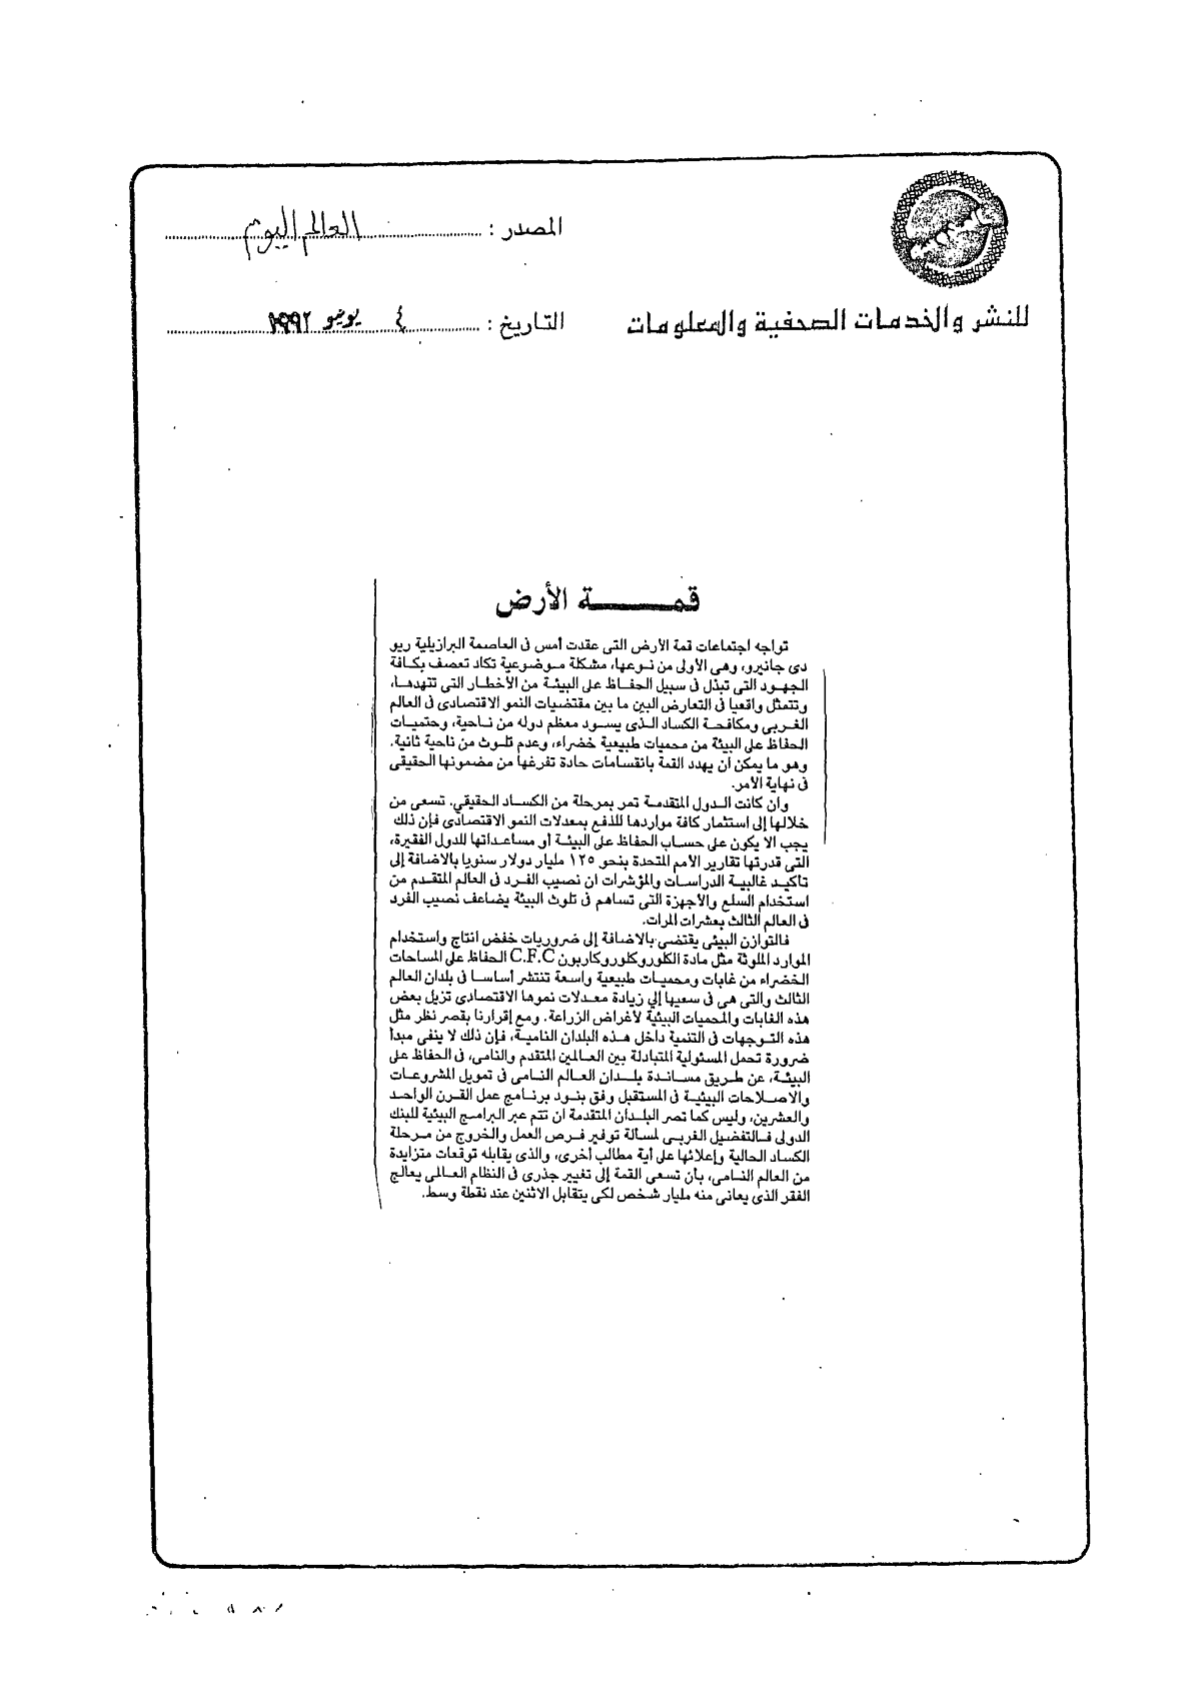 المصدر : العالم اليوم
للنشر والخدمات الصحفية والمعلومات
التاريخ : ٤ يونيو ١٩٩٢
قمة الأرض
تواجه اجتماعات قمة الأرض التى عقدت أمس فى العاصمة البرازيلية ريو
دى جانيرو، وهى الأولى من نوعها، مشكلة موضوعية تكاد تعصف بكافة
الجهود التى تبذل فى سبيل الحفاظ على البيئة من الأخطار التى تتهددها،
وتتمثل واقعيا فى التعارض البين ما بين مقتضيات النمو الاقتصادى فى العالم
الغربى ومكافحة الكساد الذى يسود معظم دوله من ناحية، وحتميات
الحفاظ على البيئة من محميات طبيعية خضراء، وعدم تلوث من ناحية ثانية.
وهو ما يمكن أن يهدد القمة بانقسامات حادة تفرغها من مضمونها الحقيقى
فى نهاية الأمر.
وان كانت الدول المتقدمة تمر بمرحلة من الكساد الحقيقي. تسعى من
خلالها إلى استثمار كافة مواردها للدفع بمعدلات النمو الاقتصادى فإن ذلك
يجب الا يكون على حساب الحفاظ على البيئة أو مساعداتها للدول الفقيرة،
التى قدرتها تقارير الأمم المتحدة بنحو ١٢٥ مليار دولار سنويا بالاضافة إلى
تأكيد غالبية الدراسات والمؤشرات ان نصيب الفرد فى العالم المتقدم من
استخدام السلع والأجهزة التى تساهم فى تلوث البيئة يضاعف نصيب الفرد
فى العالم الثالث بعشرات المرات.
فالتوازن البيئى يقتضى بالاضافة إلى ضروريات خفض انتاج واستخدام
الموارد الملوثة مثل مادة الكلوروكلوروكاربون C.F.C الحفاظ على المساحات
الخضراء من غابات ومحميات طبيعية واسعة تنتشر أساسا فى بلدان العالم
الثالث والتى هى فى سعيها إلى زيادة معدلات نموها الاقتصادى تزيل بعض
هذه الغابات والمحميات البيئية لأغراض الزراعة. ومع إقرارنا بقصر نظر مثل
هذه التوجهات فى التنمية داخل هذه البلدان النامية، فإن ذلك لا ينفى مبدأ
ضرورة تحمل المسئولية المتبادلة بين العالمين المتقدم والنامى، فى الحفاظ على
البيئة، عن طريق مساندة بلدان العالم النامى فى تمويل المشروعات
والاصلاحات البيئية فى المستقبل وفق بنود برنامج عمل القرن الواحد
والعشرين، وليس كما تصر البلدان المتقدمة ان تتم عبر البرامج البيئية للبنك
الدولى فالتفضيل الغربى لمسألة توفير فرص العمل والخروج من مرحلة
الكساد الحالية وإعلائها على أية مطالب أخرى، والذى يقابله توقعات متزايدة
من العالم النامى، بأن تسعى القمة إلى تغيير جذرى فى النظام العالمى يعالج
الفقر الذى يعانى منه مليار شخص لكى يتقابل الاثنين عند نقطة وسط.